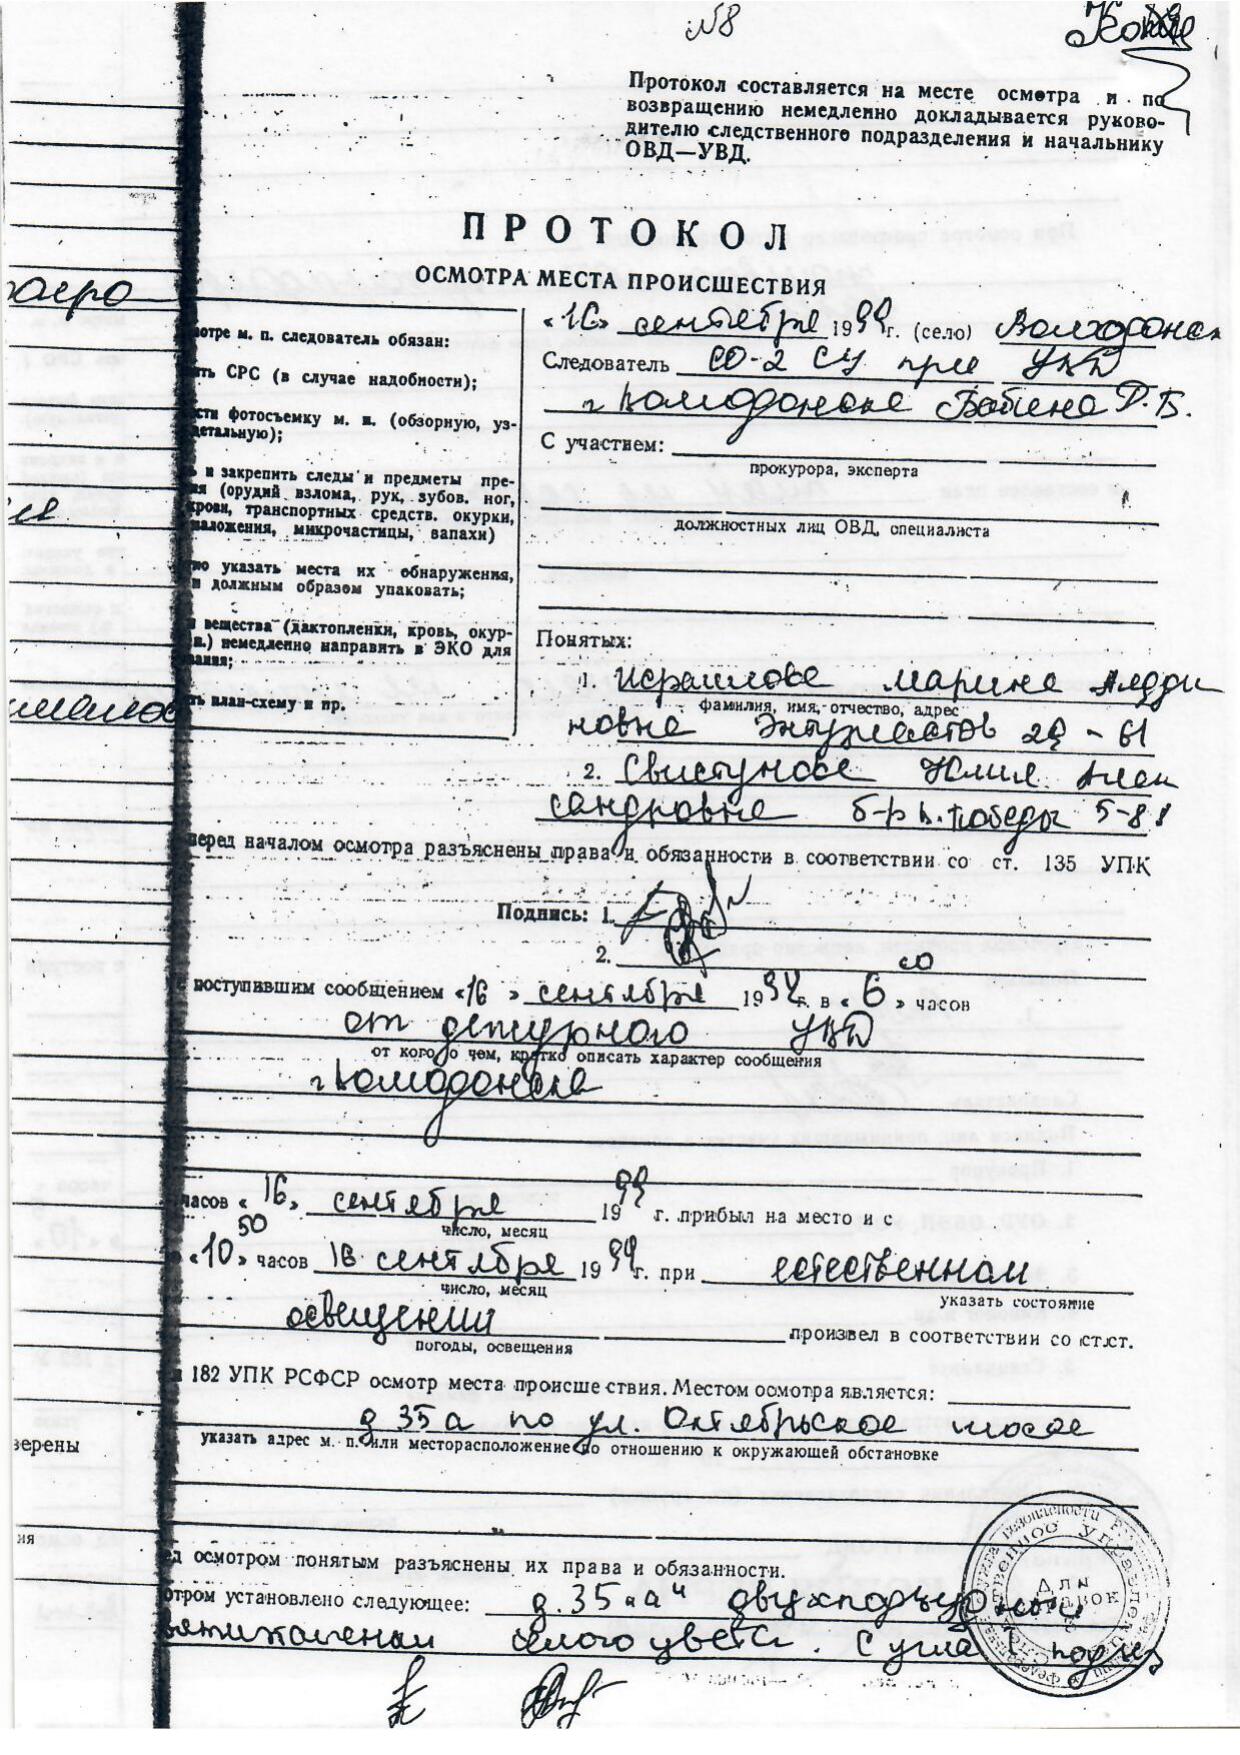 №8
Копия
Протокол составляется на месте осмотра и по
возвращению немедленно докладывается руково-
дителю следственного подразделения и начальнику
ОВД—УВД.
ПРОТОКОЛ
ОСМОТРА МЕСТА ПРОИСШЕСТВИЯ
отре м. п. следователь обязан:
ть СРС (в случае надобности);
сти фотосъемку м. п. (обзорную, уз-
детальную);
ь и закрепить следы и предметы пре-
ия (орудий взлома, рук, зубов. ног,
крови, транспортных средств. окурки,
наложения, микрочастицы, запахи)
но указать места их обнаружения,
и должным образом упаковать;
и вещества (дактопленки, кровь, окур-
п.) немедленно направить в ЭКО для
вания;
ть план-схему и пр.
«16» сентября 1999г. (село) Волгодонск
Следователь СО-2 СУ при УВД
г Волгодонска Р.Б.
С участием:
прокурора, эксперта
должностных лиц ОВД, специалиста
Понятых:
1 Марина
фамилия, имя, отчество, адрес
новна Энтузиастов 29 - 61
2. Свистунова Юлия Алек
сандровна б-р В.Победы 5-88
перед началом осмотра разъяснены права и обязанности в соответствии со ст. 135 УПК
Подпись: 1.
2.
с поступившим сообщением «16» сентября 1999г. в «6» часов
от дежурного УВД
от кого, о чем, кратко описать характер сообщения
г Волгодонска
часов «16» сентября 1999 г. прибыл на место и с
число, месяц
«10» 50 часов 16 сентября 1999г. при естественном
число, месяц
указать состояние
освещении произвел в соответствии со ст.ст.
погоды, освещения
и 182 УПК РСФСР осмотр места происшествия. Местом осмотра является:
д 35а по ул. Октябрьское шоссе
указать адрес м. п. или месторасположение по отношению к окружающей обстановке
верены
ия
ед осмотром понятым разъяснены их права и обязанности.
отром установлено следующее: д.35 „а" двухподъездный
белого цвета. С угла 1 подъез
Для
справок